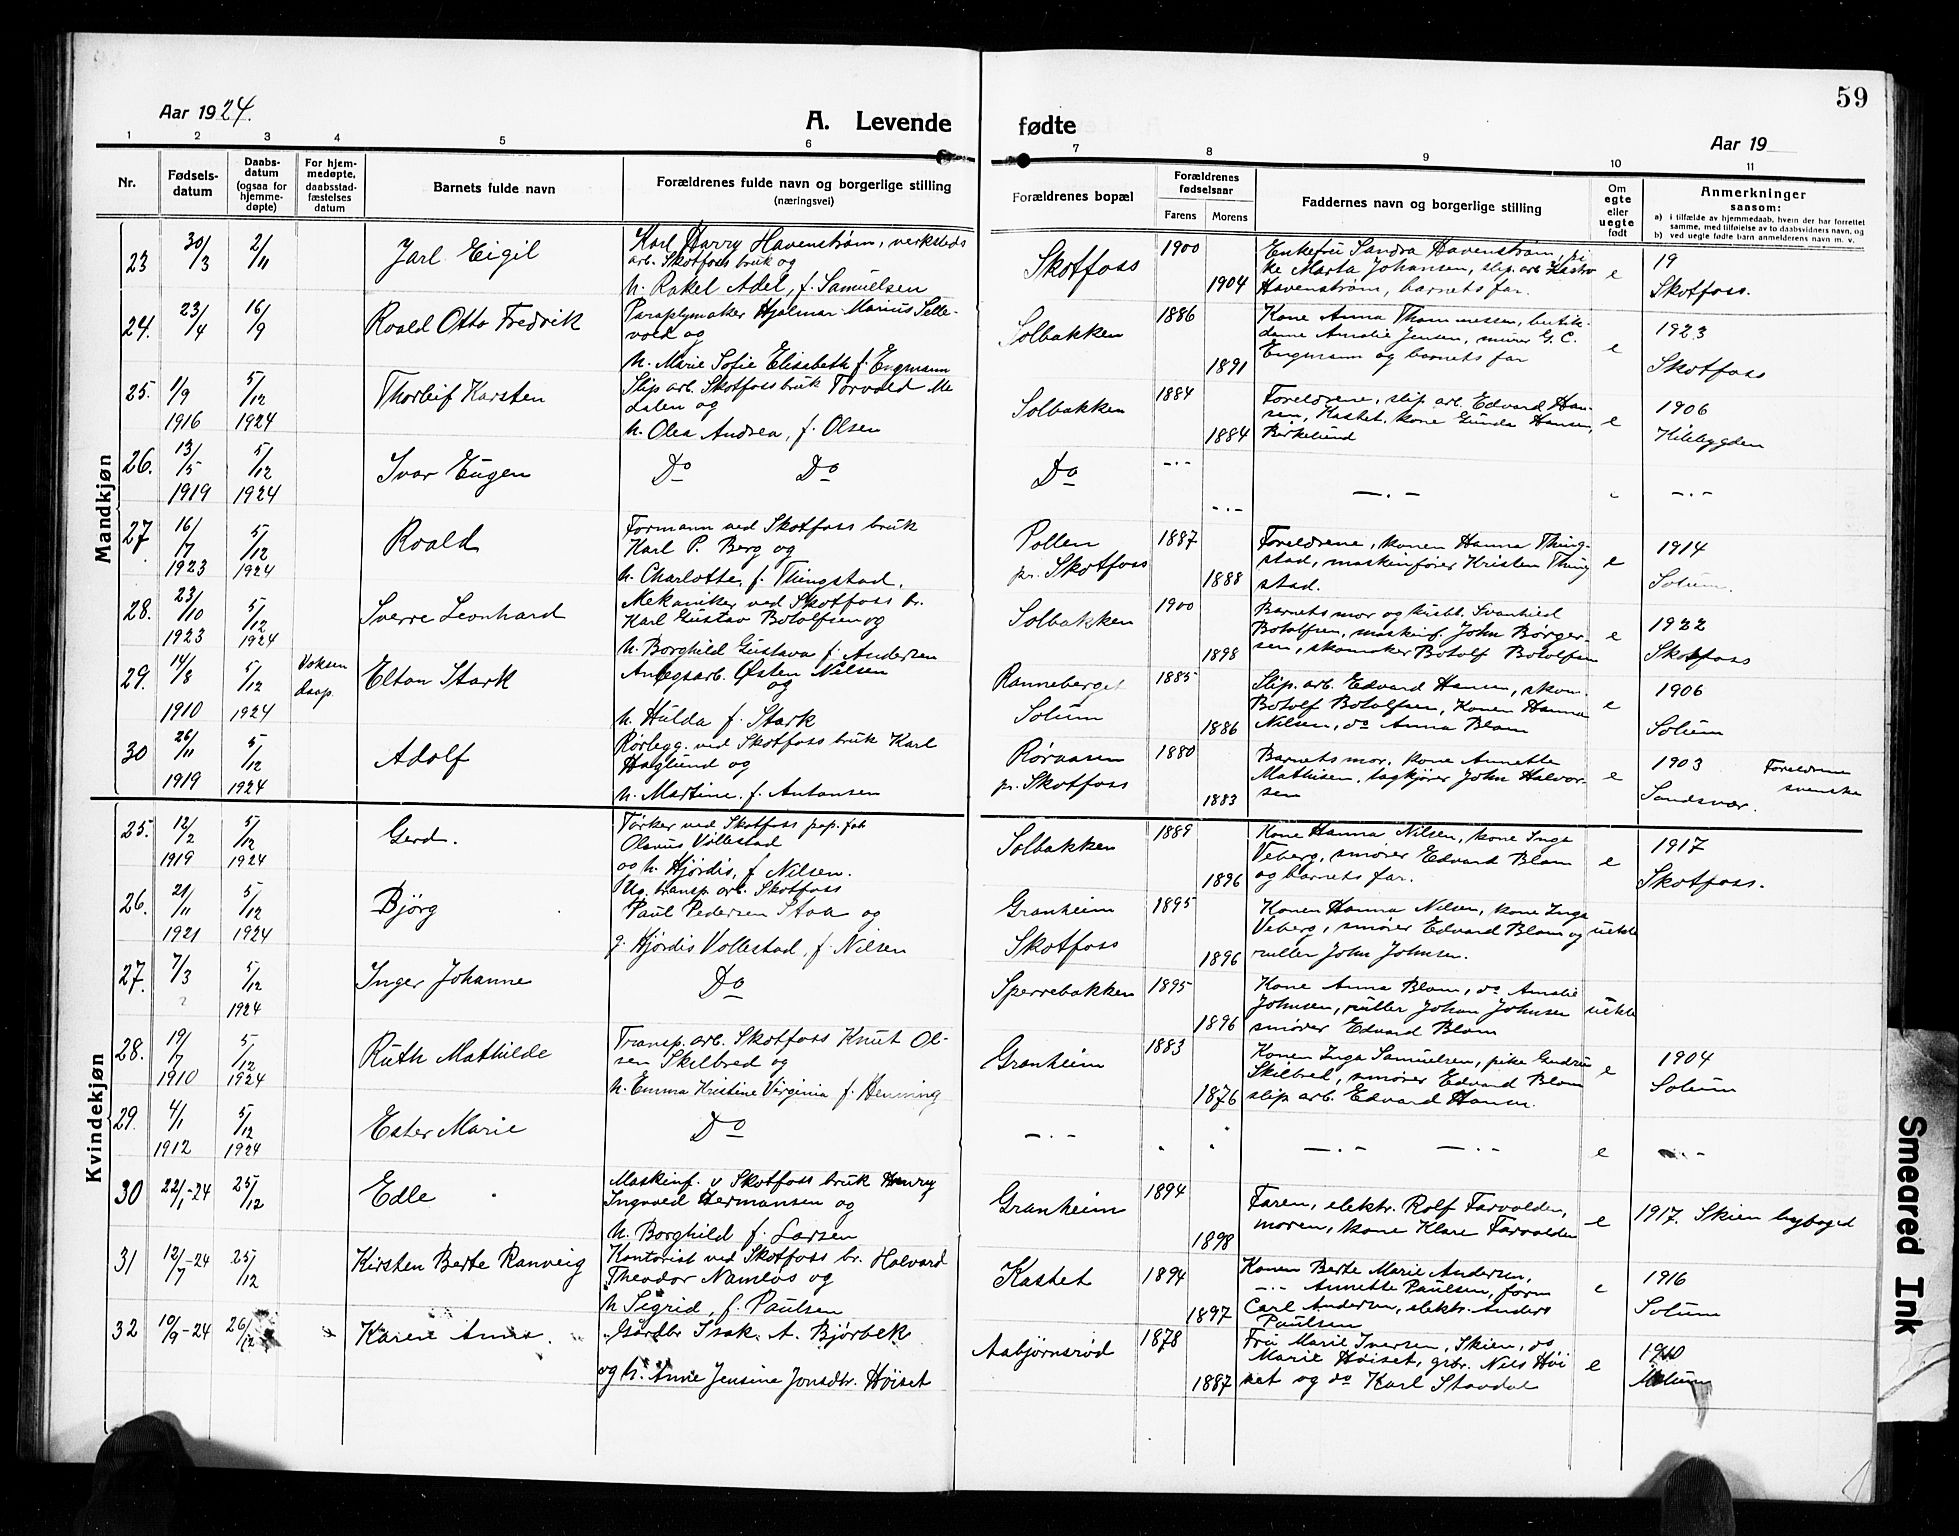 59
Aar 1924.
A. Levende fødte
Aar 19
1 2 3 4 5 6 7 8 9 10 11
Nr.
Fødsels-
datum
Daabs-
datum
(ogsaa for
hjemme-
døpte)
For hjem-
medøpte,
daabsstad-
fæstelses
datum
Barnets fulde navn
Forældrenes fulde navn og borgerlige stilling
(næringsvei)
Forældrenes bopæl
Forældrenes
fødselsaar
Farens Morens
Faddernes navn og borgerlige stilling
Om
egte
eller
uegte
født
Anmerkninger
saasom:
a) i tilfælde av hjemmedaab, hvem der har forrettet
samme, med tilføielse av to daabsvidners navn, og
b) ved uegte fødte barn anmelderens navn m. v.
Mandkjøn
23 30/3 2/11 Jarl Eigil
Karl Harry Havenstrøm, verksteds
arb. Skotfoss bruk og
h. Rakel Adel, f. Samuelsen
Skotfoss 1900 1904
Enkefru Sandra Havenstrøm, pi
ke Marta Johansen, slip. arb.
Havenstrøm, barnets far.
e
19
Skotfoss.
24. 23/4 16/9 Roald Otto Fredrik
Paraplymaker Hjalmar Marius Selle-
vold og
h. Marie Sofie Elisabeth f. Engmann
Solbakken 1886 1891
Kone Anna Thommessen, butik-
dame Amalie Jensen, murer G. C.
Engmann og barnets far
e
1923
Skotfoss
25. 1/9 1916 5/12 1924 Thorleif Karsten
Slip. arb. Skotfoss bruk Torvald Me
lalen og
h. Olea Andrea, f. Olsen
Solbakken 1884 1884
Foreldrene, slip. arb. Edvard Han-
sen, Kastet, kone Gunda Hansen,
Birkelund
e
1906
Kilebygden
26. 13/5 1919 5/12 1924 Ivar Eugen
Do Do
Do -.- -.-
-.-
-.-
27 16/7 1923 5/12 1924 Roald
Formann ved Skotfoss bruk
Karl P. Berg og
h. Charlotte, f. Thingstad.
Pollen
pr. Skotfoss
1887 1888
Foreldrene, konen Hanna Thing-
stad, maskinfører Kristen Thing
stad.
e
1914
Solum.
28. 23/10 1923 5/12 1924 Sverre Leonhard
Mekaniker ved Skotfoss br.
Karl Gustav Botolfsen og
h. Borghild Gustava f. Andersen
Solbakken 1900 1898
Barnets mor og husbt. Svanhild
Botolfsen, maskinf. John Børger-
sen, skomaker Botolf Botolfsen
e
1922
Skotfoss
29. 14/8 1910 5/12 1924
Voksen
daap.
Elton Stark
Anlegsarb. Østen Nilsen
og
h. Hulda f. Stark
Ranneberget
Solum
1885 1886
Slip. arb. Edvard Hansen, skom.
Botolf Botolfsen, Konen Hanna
Nilsen, do Anna Blom
e
1906
Solum
30 26/11 1919 5/12 1924 Adolf
Rørlegg. ved Skotfoss bruk Karl
Haglund og
h. Martine, f. Antonsen
Røraasen
pr. Skotfoss
1880 1883
Barnets mor, kone Annette
Mathisen, togkjører John Halvor-
sen
e
1903 Foreldrene
svenske
Sandsvær.
Kvindekjøn
25. 12/2 1919 5/12 1924 Gerd.
Tørker ved Skotfoss pap. fab
Olavus Vollestad
og h. Hjørdis, f. Nilsen.
Solbakken 1889 1896
Kone Hanna Nilsen, kone Inga
Veberg, smører Edvard Blom
og barnets far.
e
1917
Skotfoss.
26. 21/11 1921 5/12 1924 Bjørg
Ug. transp. arb. Skotfoss
Paul Pedersen Stoa og
g. Hjørdis Vollestad, f. Nilsen
Granheim
Skotfoss
1895 1896
Konen Hanna Nilsen, kone Inga
Veberg, smører Edvard Blom og
ruller John Johnsen.
uekte
27. 7/3 ? 5/12 1924 Inger Johanne
Do
Sperrebakken 1895 1896
Kone Anna Blom, do Amalie
Johnsen, ruller Johan Johnsen
smører Edvard Blom
uekte
28. 19/7 1910 5/12 1924 Ruth Mathilde
Transp. arb. Skotfoss Knut Ol-
sen Skilbred og
h. Emma Kristine Virginia f. Henning
Granheim 1883 1876
Konen Inga Samuelsen, pike Gudrun
Skilbred, smører Edvard Blom
slip. arb. Edvard Hansen.
e
1904
Solum
29. 4/1 1912 5/12 1924 Ester Marie
Do
-.-
-.- -.-
e
-.-
30 22/1-24 25/12 Edle
Maskinf. v Skotfoss bruk Henry
Ingvald Hermansen og
h. Borghild f. Larsen
Granheim 1894 1898
Faren, elektr. Rolf Farvolden,
moren, kone Klare Farvolden
e
1917. Skien
31 12/7-24 25/12 Kirsten Berte Ranveig
Kontorist ved Skotfoss br. Halvard
Theodor Namløs og
h Sigrid, f. Paulsen
Kastet 1894 1897
Konen Berte Marie Andersen,
-.- Annette Paulsen, form
Carl Andersen, elektr. Anders
Paulsen
e
1916
Solum
32 10/9-24 26/12 Karen Anna.
Gårdbr Isak A. Bjørbek
og h. Anne Jensine Jonsdtr. Høiset
Aabjørnsrød 1878 1887
Fru Marie Iversen, Skien, do
Marie Høiset, grbr. Nils Høi
set og do Karl Stavdal
e
1910
Solum
Smeared Ink